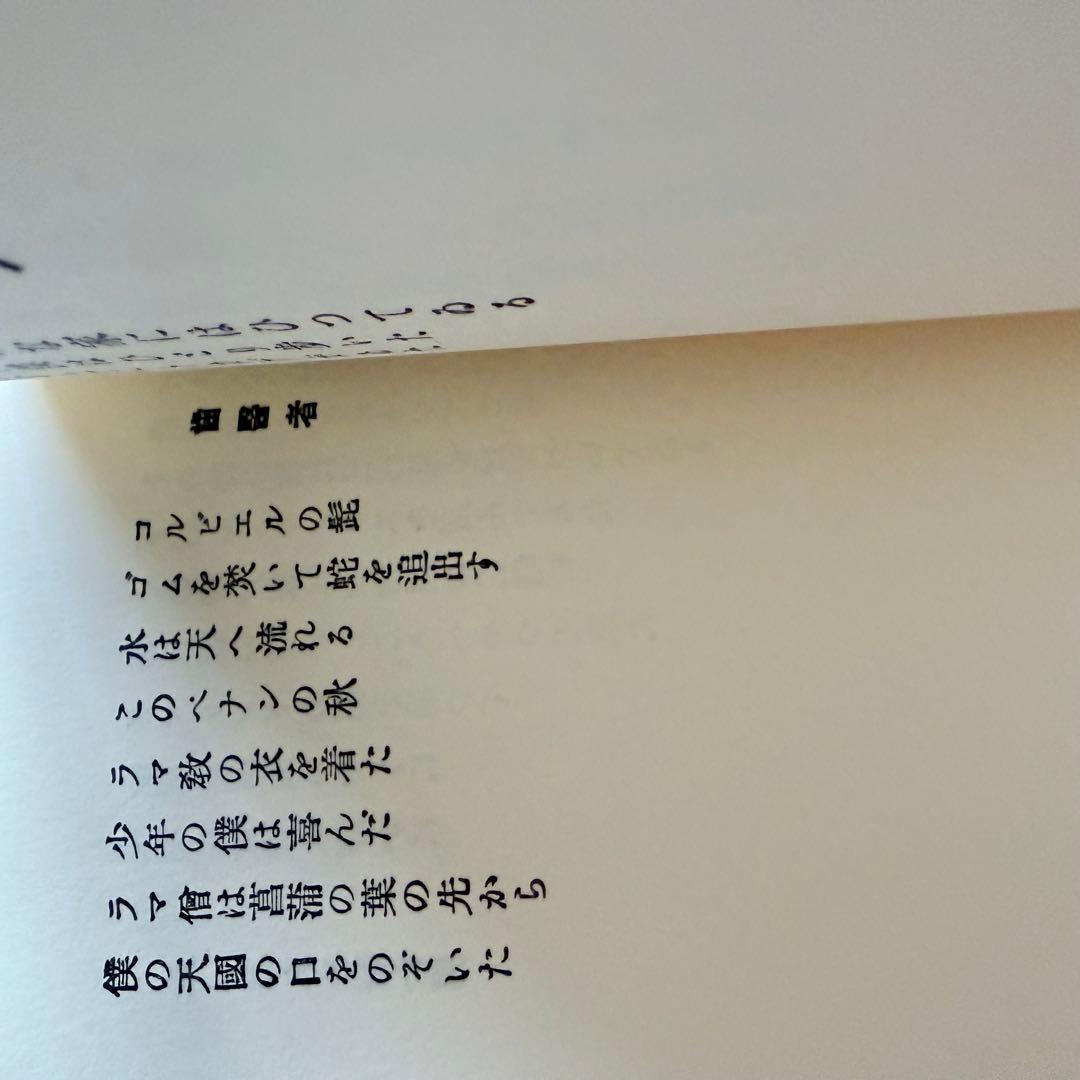 にはひつてゐる
歯醫者
コルビエルの髭
ゴムを焚いて蛇を追出す
水は天へ流れる
このペナンの秋
ラマ教の衣を着た
少年の僕は喜んだ
ラマ僧は菖蒲の葉の先から
僕の天國の口をのぞいた